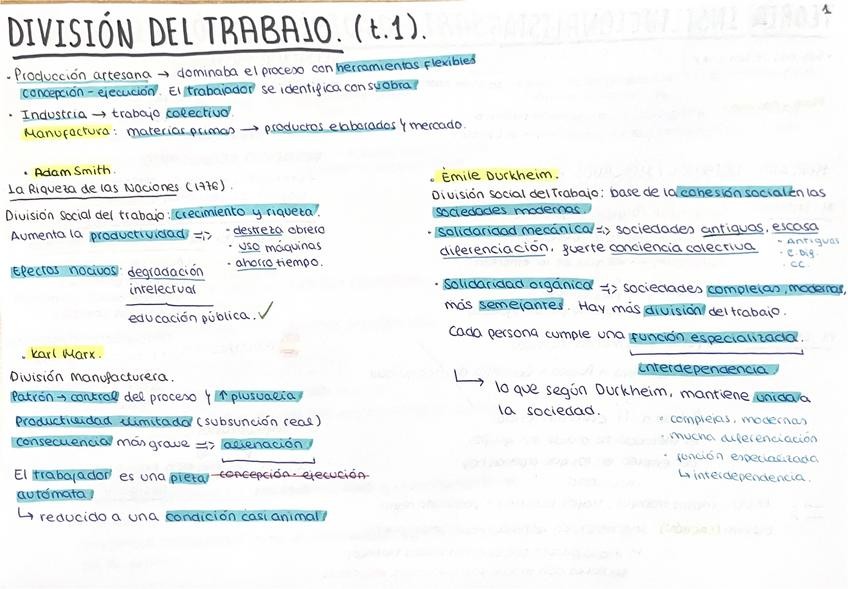 1
DIVISIÓN DEL TRABAJO. (t.1).
· Producción artesana → dominaba el proceso con herramientas flexibles
concepción - ejecución. El trabajador se identifica con su obra.
· Industria → trabajo colectivo.
Manufactura: materias primas → productos elaborados y mercado.
· Adam Smith.
La Riqueza de las Naciones (1776).
División social del trabajo: crecimiento y riqueza.
Aumenta la productividad => · destreza obrero
· uso máquinas
· ahorro tiempo.
Efectos nocivos: degradación
intelectual
educación pública. ✓
· Karl Marx.
División manufacturera.
Patrón → control del proceso y ↑ plusvalía
Productividad ilimitada (subsunción real)
consecuencia más grave => alienación
El trabajador es una pieza concepción - ejecución
autómata
↳ reducido a una condición casi animal
· Émile Durkheim.
División Social del Trabajo: base de la cohesión social en las
sociedades modernas.
· Solidaridad mecánica => sociedades antiguas, escasa
diferenciación, fuerte conciencia colectiva
· Antiguas
· E. Dif.
· CC.
· Solidaridad orgánica => sociedades complejas, modernas,
más semejantes. Hay más división del trabajo.
Cada persona cumple una función especializada
interdependencia
↳ lo que según Durkheim, mantiene unida a
la sociedad.
· complejas, modernas
· mucha diferenciación
· función especializada
↳ interdependencia.